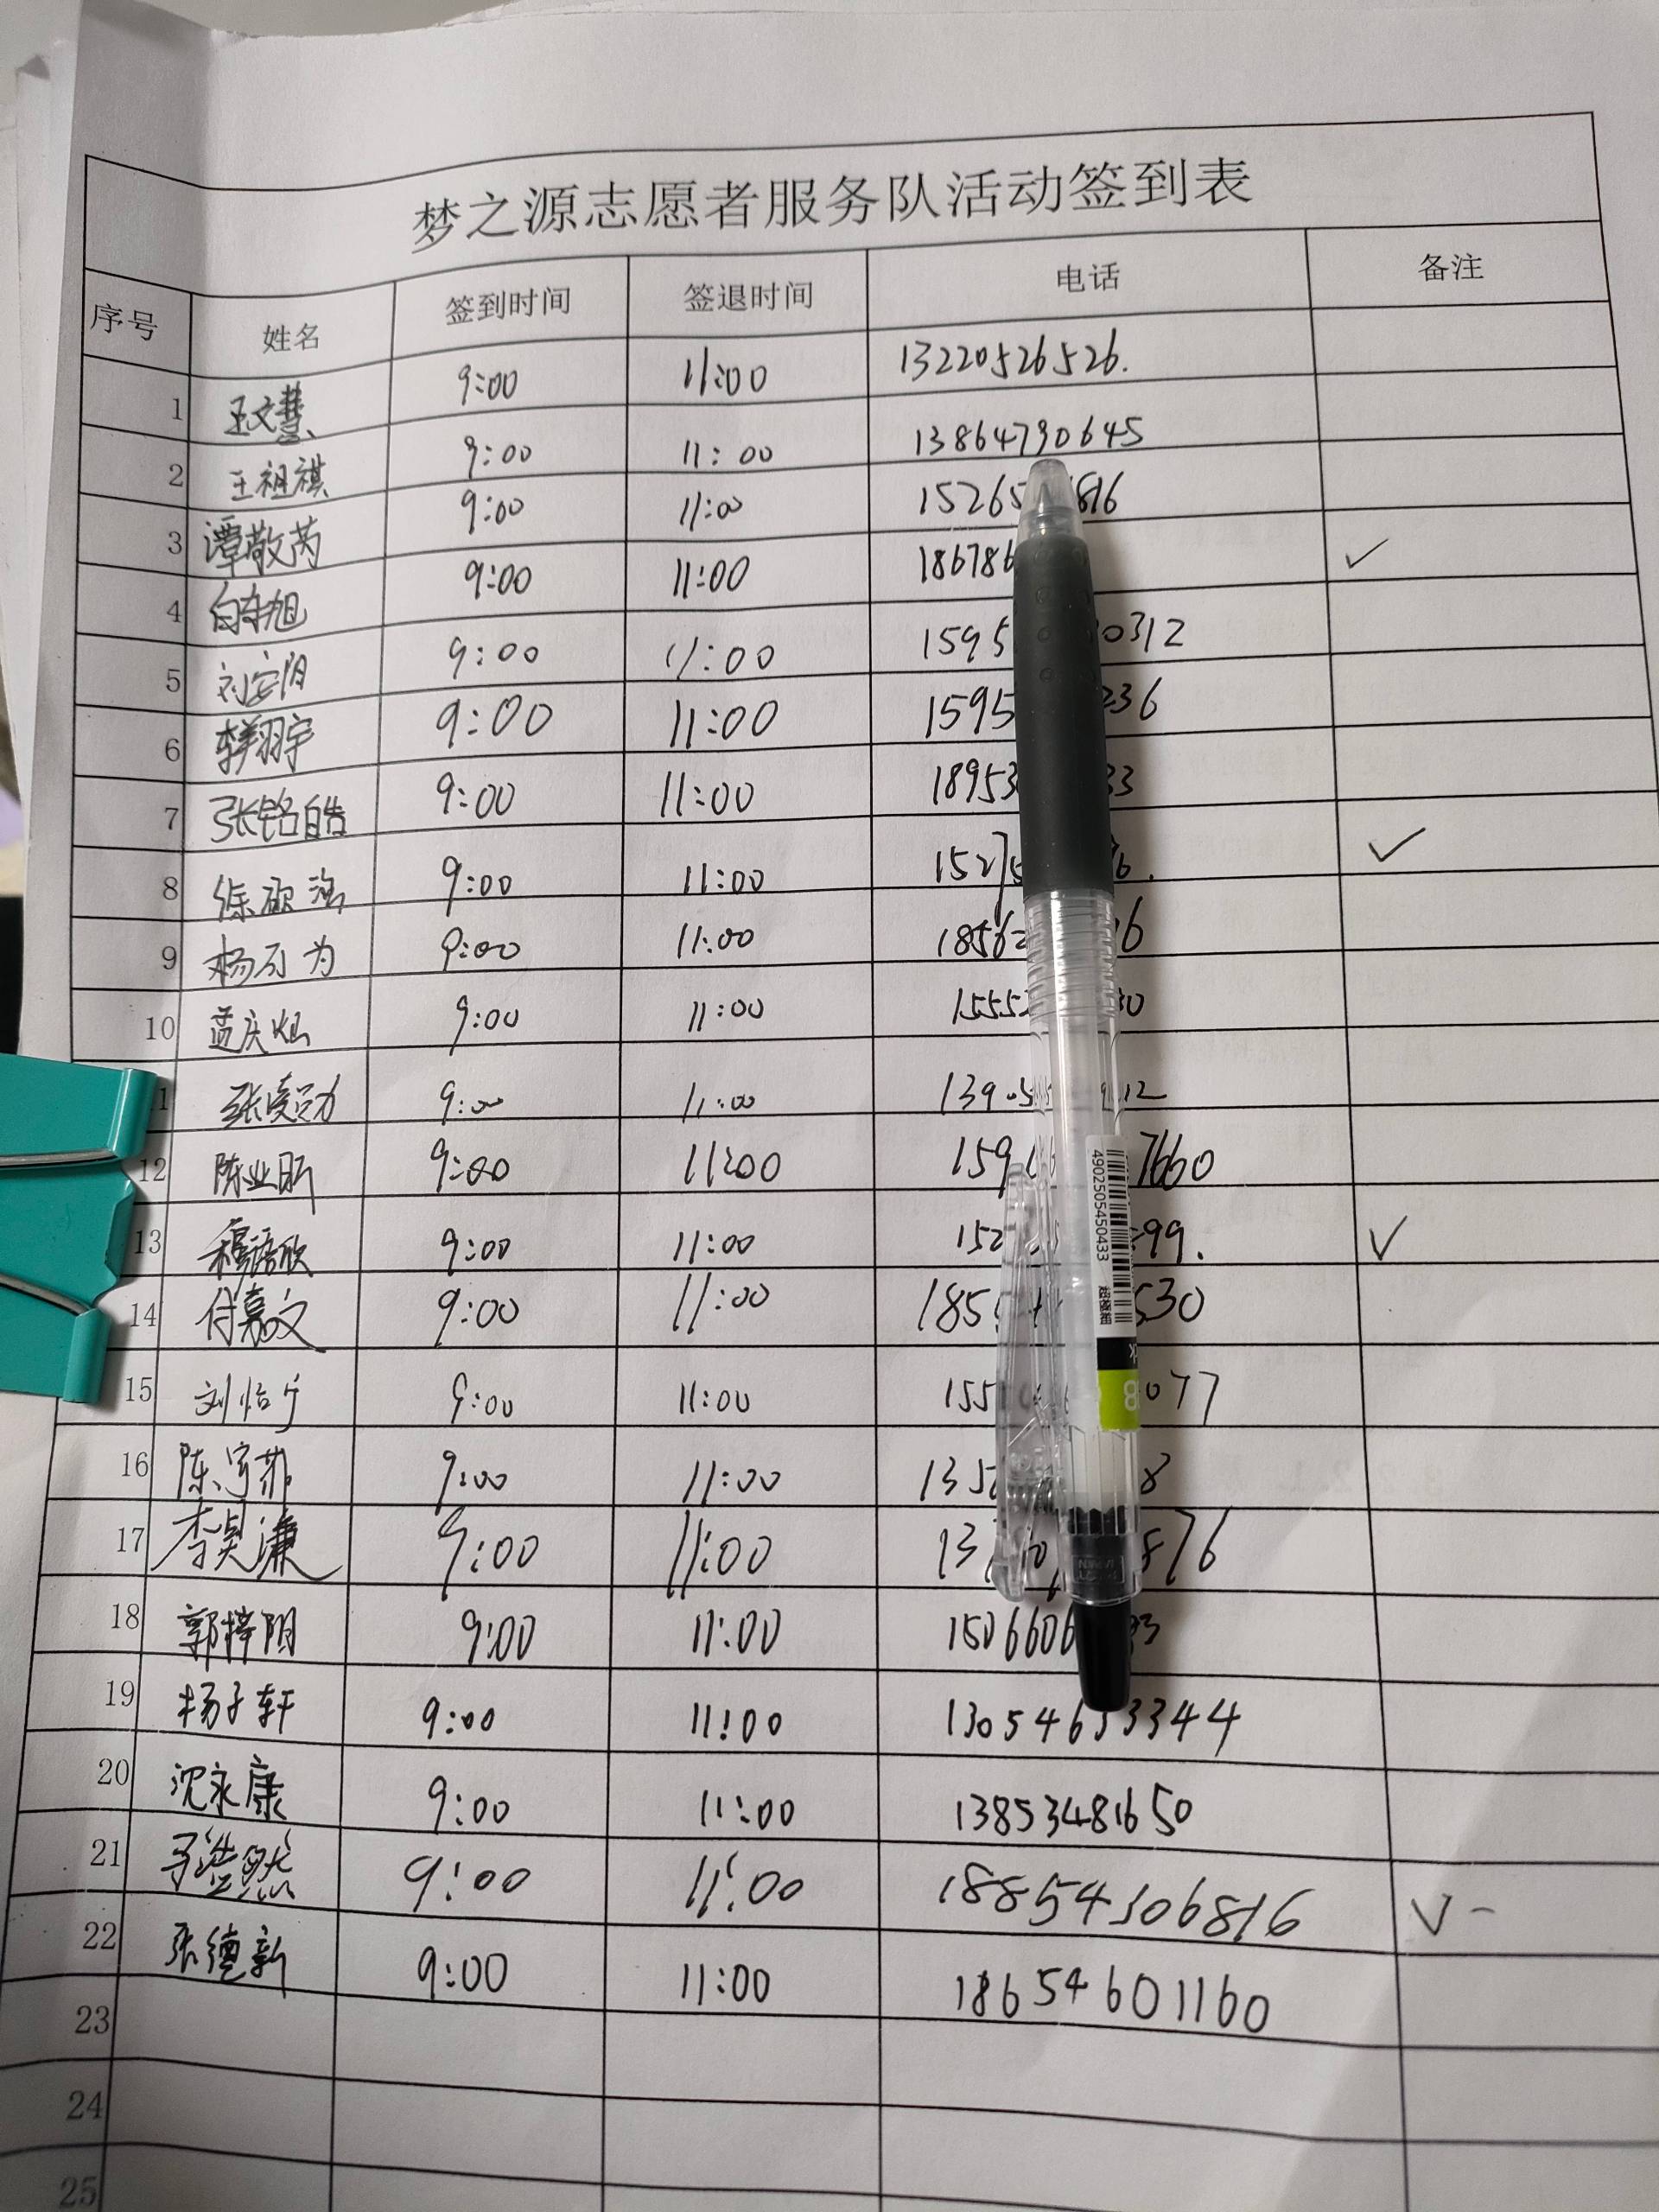 梦之源志愿者服务队活动签到表
序号 姓名 签到时间 签退时间 电话 备注
1 王文慧 9:00 11:00 13220526526.
2 王祖祺 9:00 11:00 13864790645
3 谭敬芮 9:00 11:00 15265 816
4 9:00 11:00 186786 ✓
5 9:00 11:00 1595 0312
6 李翔宇 9:00 11:00 1595 236
7 张铭皓 9:00 11:00 18953 33
8 9:00 11:00 15275 6. ✓
9 9:00 11:00 1856 16
10 孟庆灿 9:00 11:00 1555 30
11 9:00 11:00 1390 12
12 陈业昕 9:00 11:00 159 7660
13 穆语欣 9:00 11:00 152 99. ✓
14 付嘉文 9:00 11:00 185 530
15 9:00 11:00 155 077
16 9:00 11:00 135 8
17 李昊濂 9:00 11:00 13 876
18 郭梓阳 9:00 11:00 1506606 93
19 杨子轩 9:00 11:00 13054653344
20 沈永康 9:00 11:00 13853481650
21 于浩然 9:00 11:00 18854306816 ✓-
22 张德新 9:00 11:00 18654601160
23
24
25
4902505450433